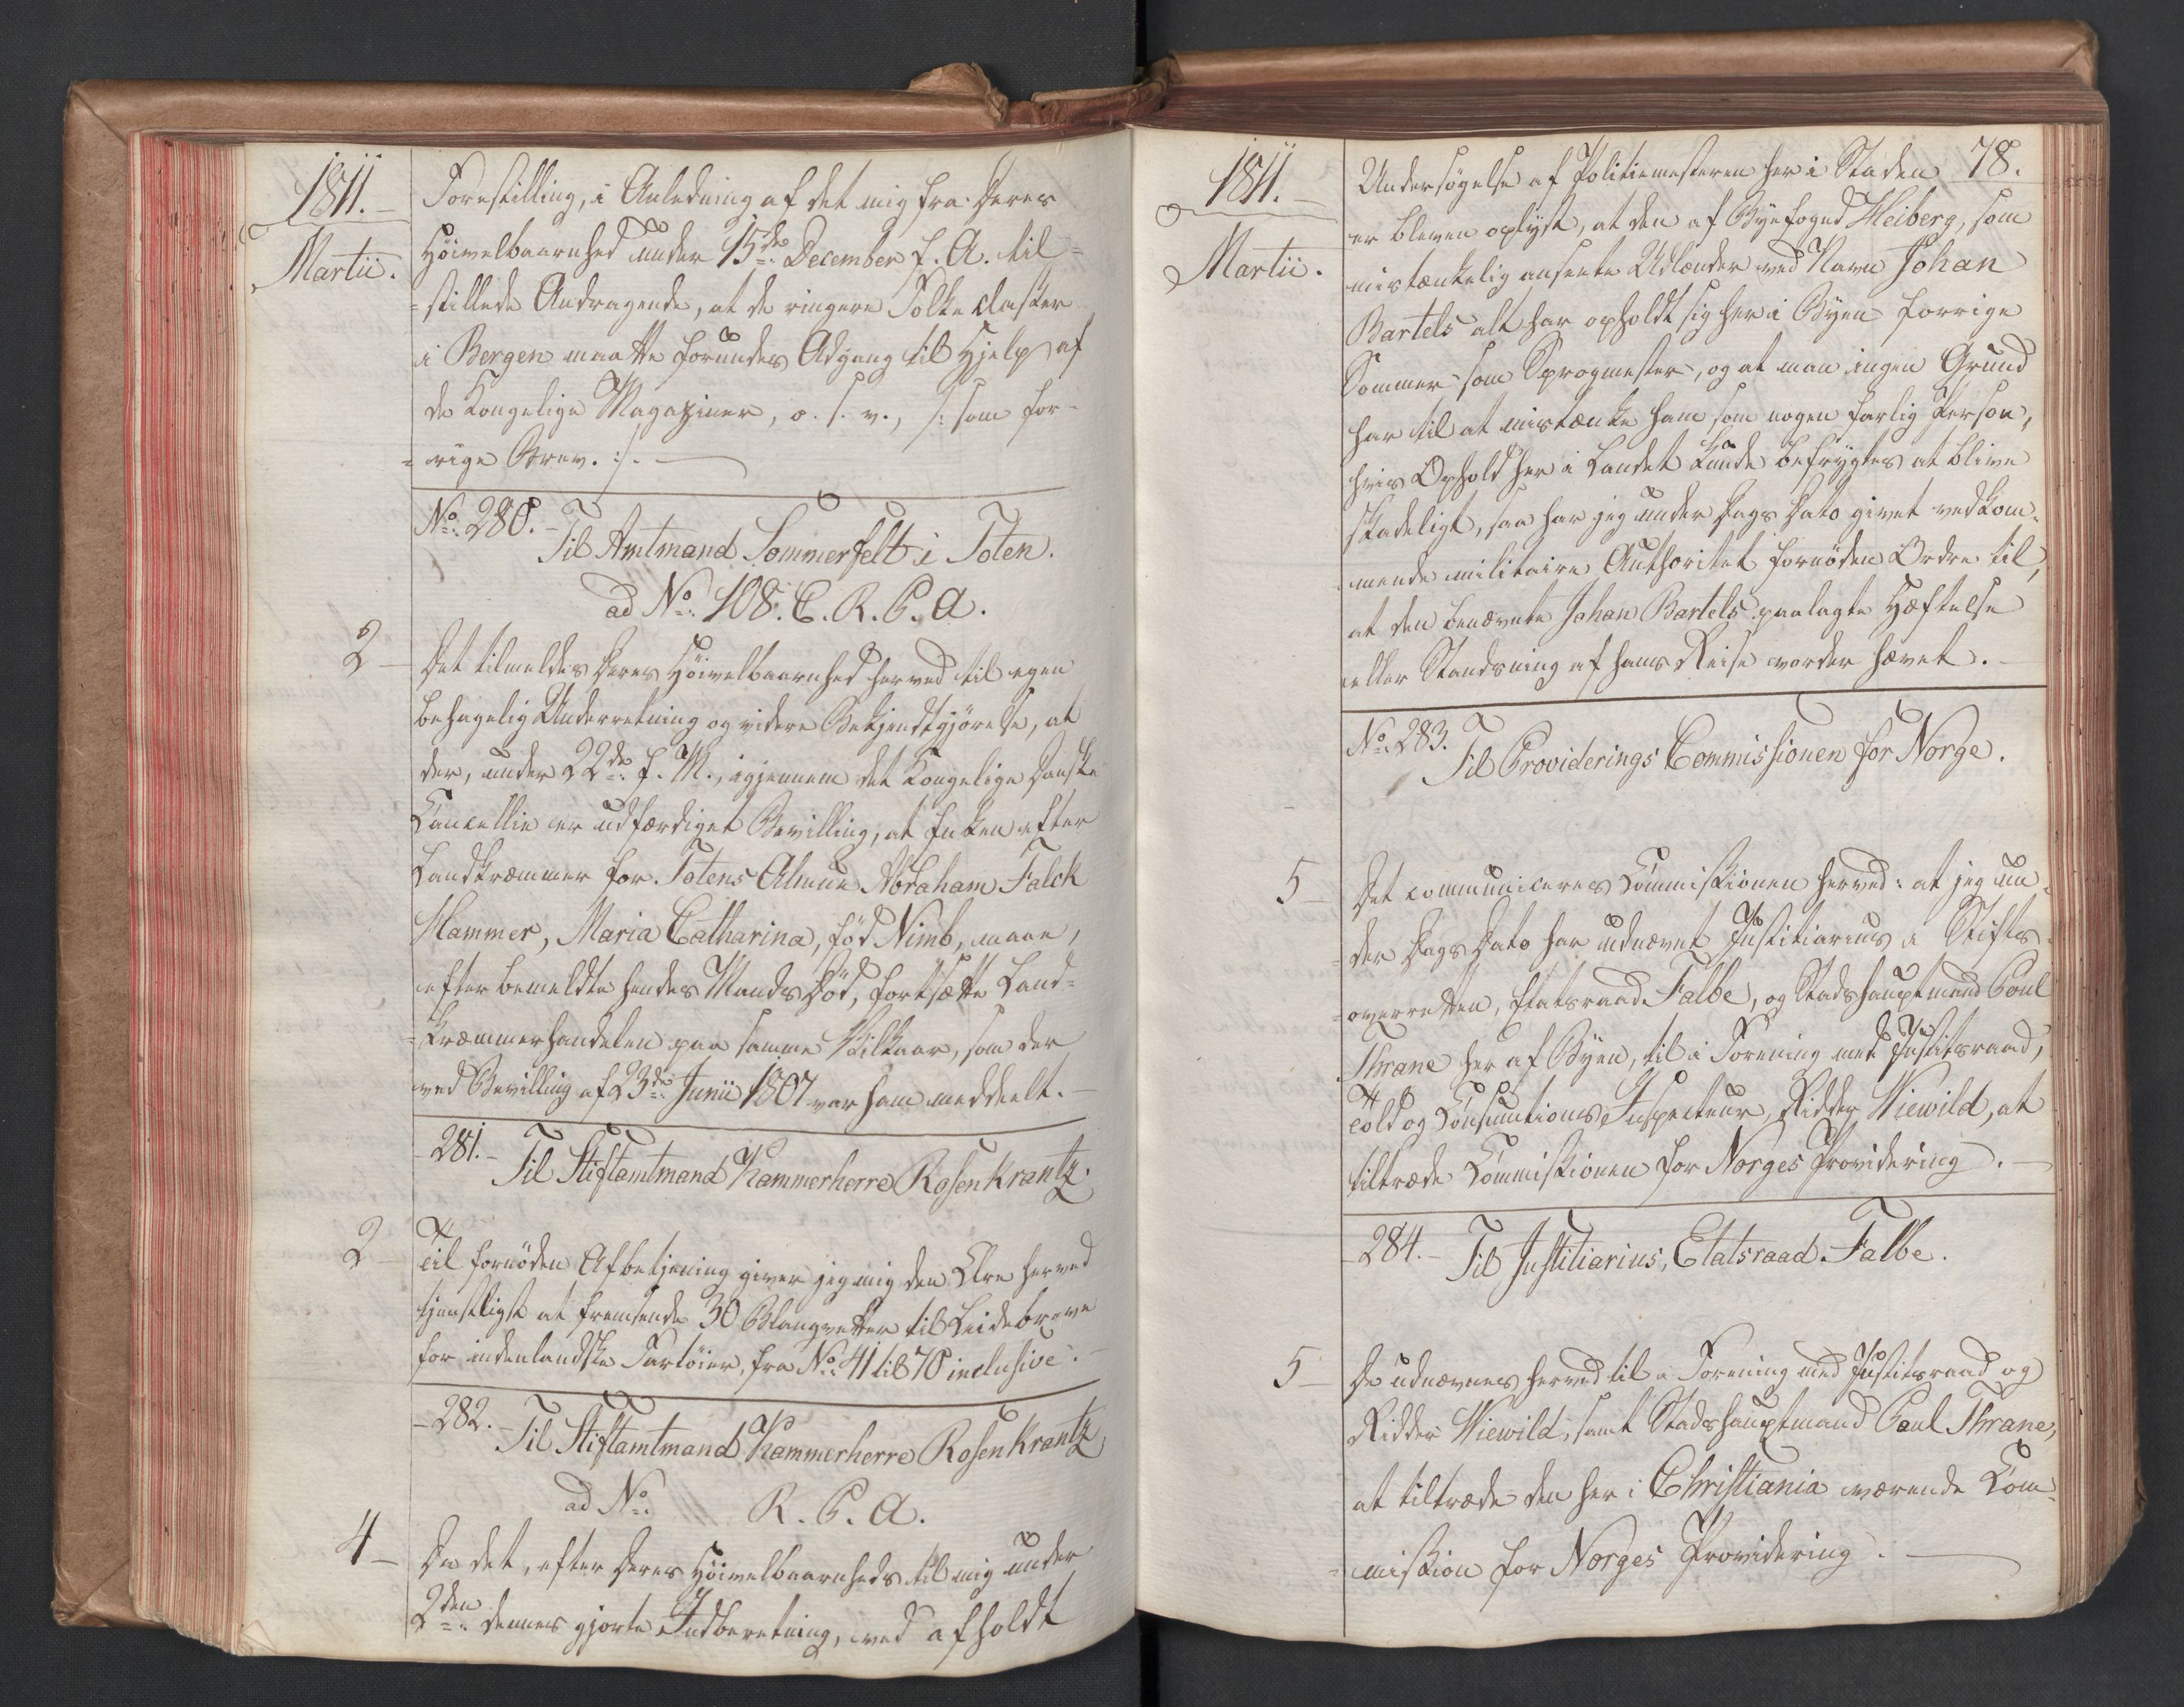 1811.
Martii.
Forestilling, i Anledning af det mig fra Deres
Høivelbaarnhed under 15de December f. A. til-
=stillede Andragende, at de ringere Folkeclasser
i Bergen maatte forundes Adgang til Hjelp af
de Kongelige Magaziner, o. s. v., /: som for-
=rige Brev. :/.
No. 280. Til Amtmand Sommerfelt i Toten.
ad No. 108. C. R. P. A.
2 Det tilmeldes Deres Høivelbaarnhed herved til egen
behagelig Underretning og videre Bekjendtgjørelse, at
der, under 22de f. M., igjennem det Kongelige Danske
Cancellie er udfærdiget Bevilling, at Enken efter
Landkræmmer for Totens Almue Abraham Falck
Hammer, Maria Catharina, fød Nimb, maae,
efter bemeldte hendes Mands Død, fortsætte Land-
=kræmmerhandelen paa samme Vilkaar, som der
ved Bevilling af 23de Junii 1807 var ham meddeelt.
- 281. - Til Stiftamtmand Kammerherre Rosenkrantz.
2 Til fornøden Afbetjening giver jeg mig den Ære herved
tjenstligst at fremsende 30 Blanqvetter til Leidebreve
for indenlandske Fartøier, fra No. 41 til 70 inclusive.
- 282. - Til Stiftamtmand Kammerherre Rosenkrantz
ad No. R. P. A.
4 - Da det, efter Deres Høivelbaarnheds til mig under
2den dennes gjorte Indberetning, ved afholdt
1811.
Martii.
78.
Undersøgelse af Politiemesteren her i Staden
er bleven oplyst, at den af Byefoged Heiberg, som
mistænkelig ansete Udlænder ved Navn Johan
Bartels alt har opholdt sig her i Byen forrige
Sommer som Sprogmester, og at man ingen Grund
har til at mistænke ham som nogen farlig Person,
hvis Ophold her i Landet kunde befrygtes at blive
skadeligt, saa har jeg under Dags Dato givet vedkom-
mende militaire Authoritet fornøden Ordre til,
at den benævnte Johan Bartels paalagte Hæftelse
eller Standsning af hans Reise vorder hævet.
No. 283. Til Providerings Commissionen for Norge.
5 - Det communiceres Commissionen herved: at jeg un-
=der Dags Dato har udnævnt Justitiarius i Stifts-
=overretten, Etatsraad Falbe, og Stadshauptmand Poul
Thrane her af Byen, til i Forening med Justitsraad,
Told og Consumtions Inspecteur, Ridder Wiewild, at
tiltræde Commissionen for Norges Providering.
- 284. - Til Justitiarius, Etatsraad Falbe.
5 - De udnævnes herved til i Forening med Justitsraad og
Ridder Wiewild, samt Stadshauptmand Poul Thrane,
at tiltræde den her i Christiania værende Com-
=mission for Norges Providering.